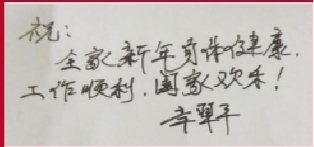 祝：
全家新年身体健康.
工作顺利.阖家欢乐！
辛翠平